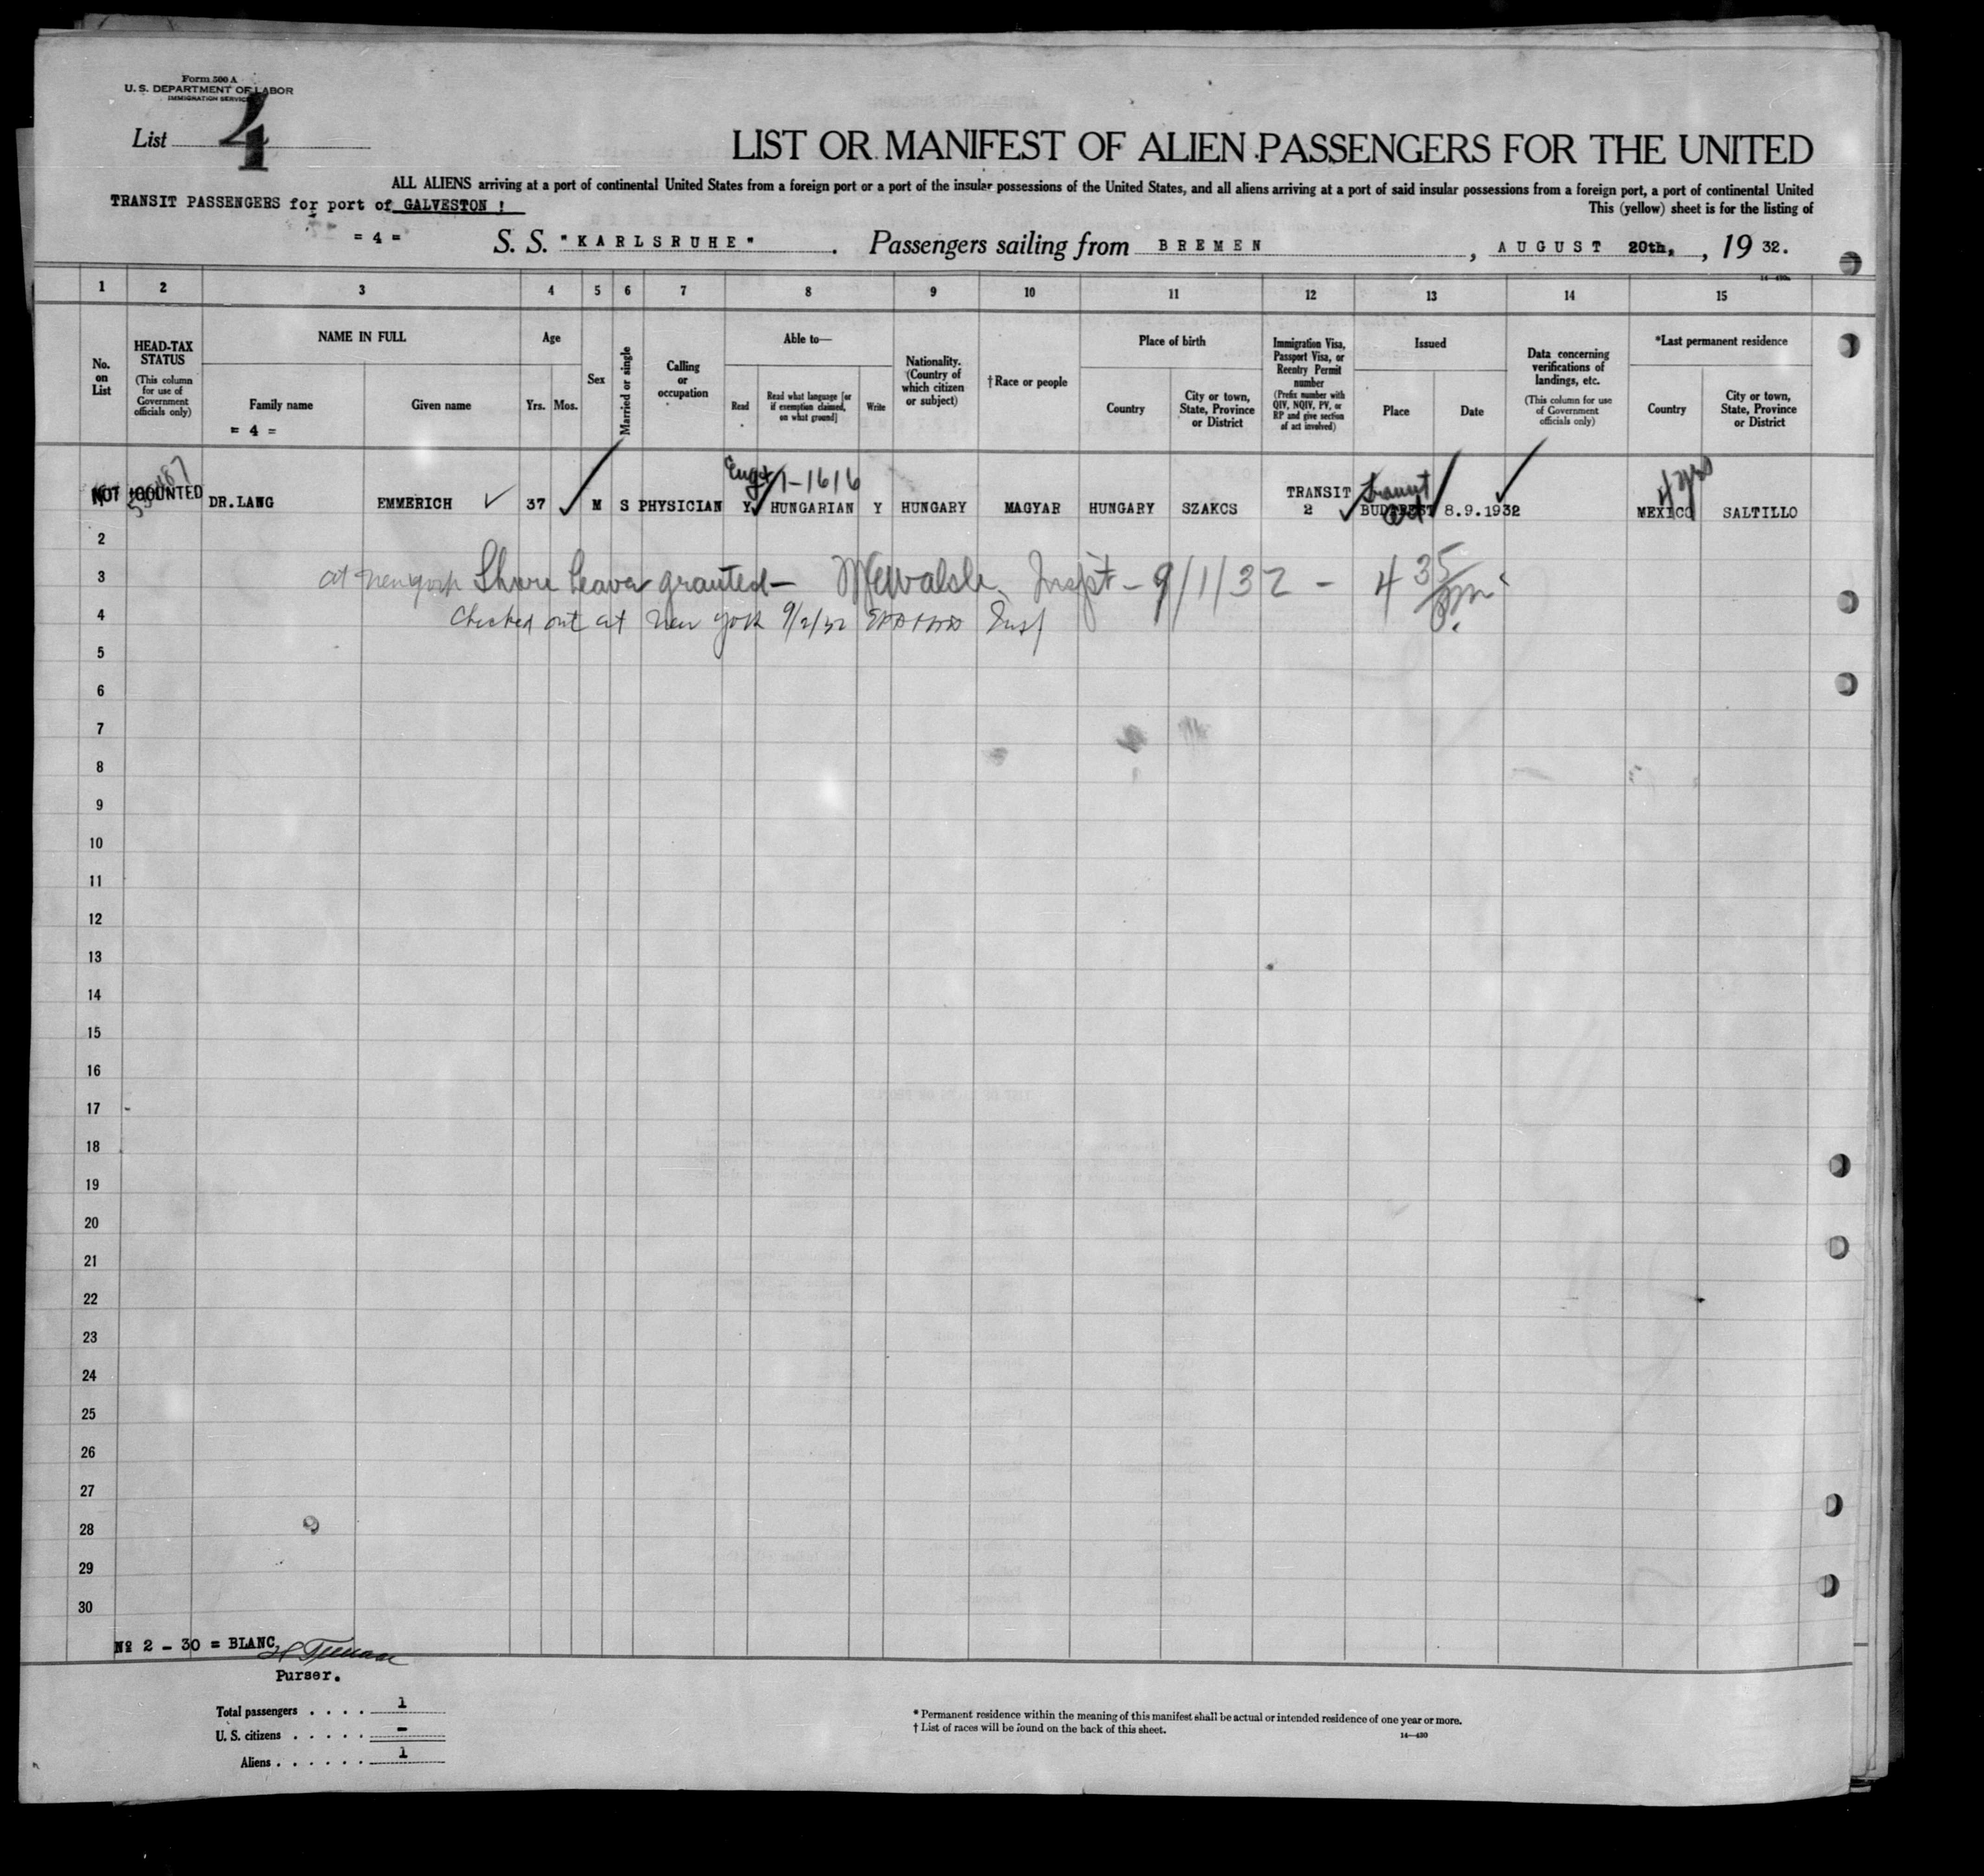 Form 500 A
U. S. DEPARTMENT OF LABOR
IMMIGRATION SERVICE
List 4
LIST OR MANIFEST OF ALIEN PASSENGERS FOR THE UNITED
ALL ALIENS arriving at a port of continental United States from a foreign port or a port of the insular possessions of the United States, and all aliens arriving at a port of said insular possessions from a foreign port, a port of continental United
TRANSIT PASSENGERS for port of GALVESTON !
This (yellow) sheet is for the listing of
= 4 = S. S. "KARLSRUHE". Passengers sailing from BREMEN, AUGUST 20th, , 19 32.
14—430
1 2 3 4 5 6 7 8 9 10 11 12 13 14 15
No. on List
HEAD-TAX STATUS
(This column for use of Government officials only)
NAME IN FULL
Family name
= 4 =
Given name
Age
Yrs. Mos.
Sex
Married or single
Calling or occupation
Able to—
Read
Read what language [or if exemption claimed, on what ground]
Write
Nationality. (Country of which citizen or subject)
† Race or people
Place of birth
Country
City or town, State, Province or District
Immigration Visa, Passport Visa, or Reentry Permit number
(Prefix number with QIV, NQIV, PV, or RP and give section of act involved)
Issued
Place
Date
Data concerning verifications of landings, etc.
(This column for use of Government officials only)
*Last permanent residence
Country
City or town, State, Province or District
Engl 1-1616 TRANSIT Transit 4 yrs
NOT COUNTED DR.LANG EMMERICH 37 M S PHYSICIAN Y HUNGARIAN Y HUNGARY MAGYAR HUNGARY SZAKCS 2 BUDAPEST 8.9.1932 MEXICO SALTILLO
2
3 at New York Shore Leave granted — Inspt - 9/1/32 - 4 35 pm.
4 Checked out at New York 9/2/32 Insp
5
6
7
8
9
10
11
12
13
14
15
16
17
18
19
20
21
22
23
24
25
26
27
28
29
30
№ 2 - 30 = BLANC.
Purser.
Total passengers . . . . 1
U. S. citizens . . . . . -
Aliens . . . . . . 1
* Permanent residence within the meaning of this manifest shall be actual or intended residence of one year or more.
† List of races will be found on the back of this sheet.
14—430